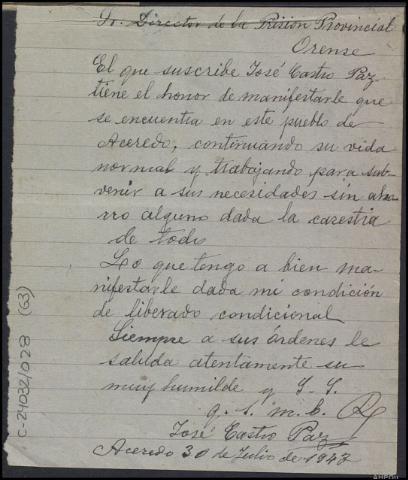 Sr. Director de la Prisión Provincial
Orense
El que suscribe José Castro Paz
tiene el honor de manifestarle que
se encuentra en este pueblo de
Aceredo, continuando su vida
normal y trabajando para sub-
venir a sus necesidades sin aho-
rro alguno dada la carestia
de todo
Lo que tengo a bien ma-
nifestarle dada mi condición
de liberado condicional
Siempre a sus órdenes le
saluda atentamente su
muy humilde y S. S.
q. s. m. b.
José Castro Paz
Aceredo 30 de Julio de 1947
C-24032/028 (63)
AHPOU